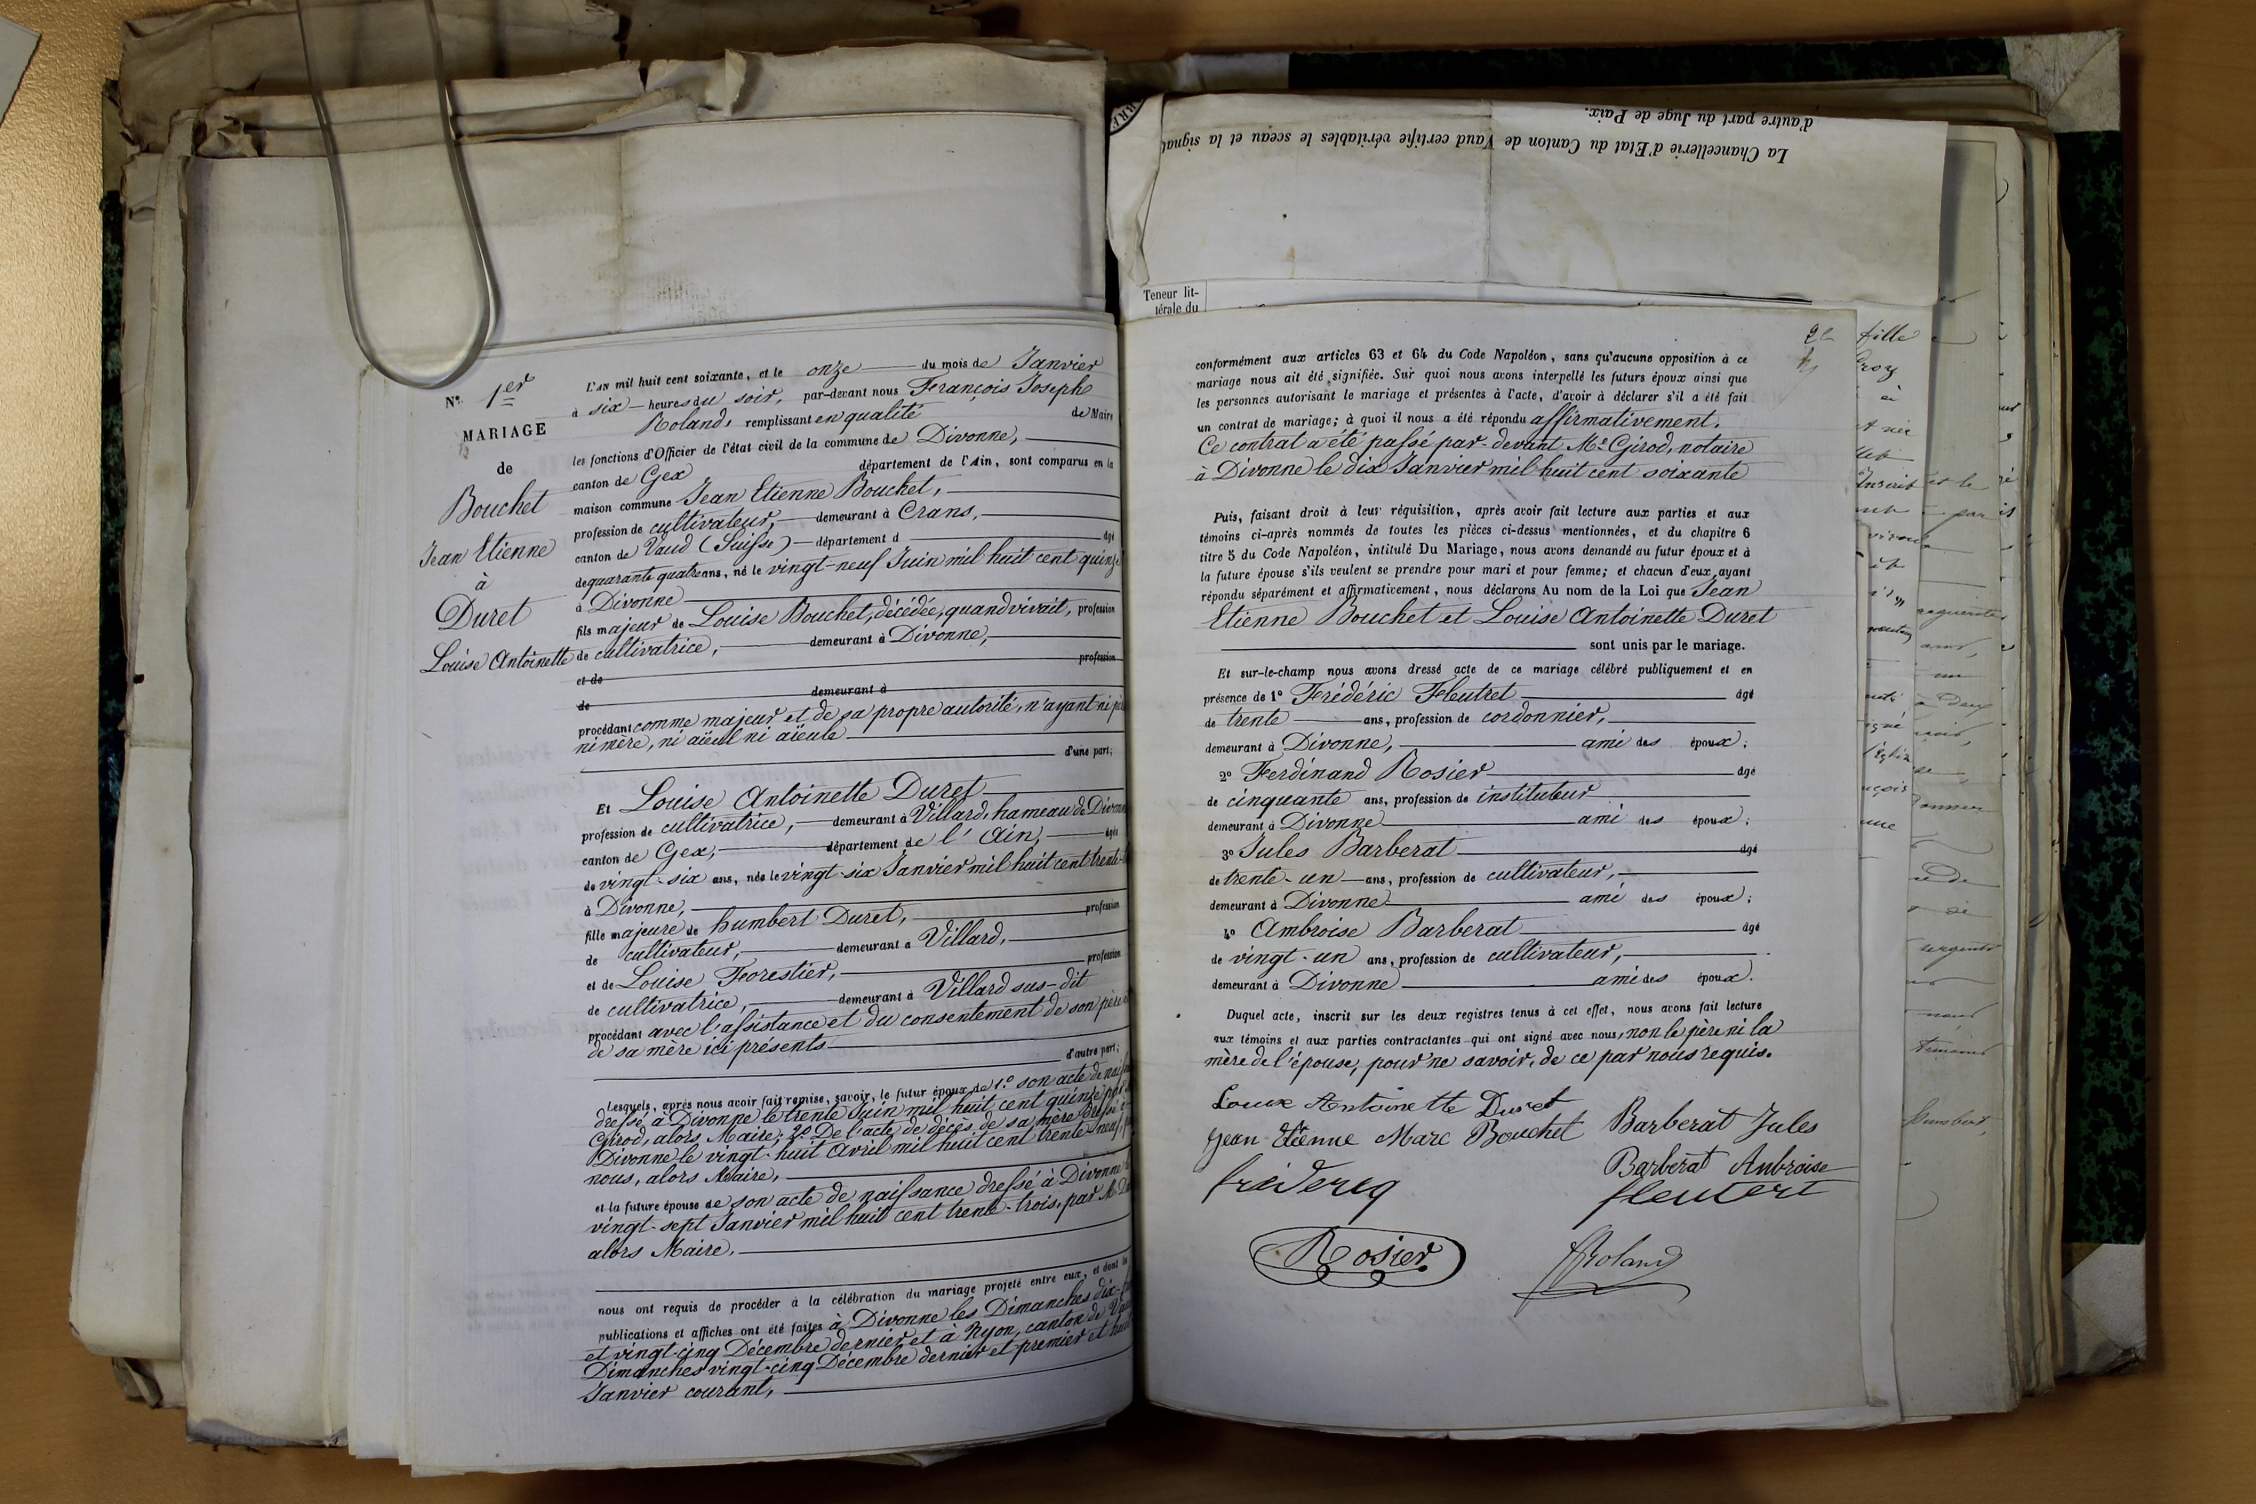 N° 1er
MARIAGE
de
Bouchet
Jean Etienne
à
Duret
Louise Antoinette
L'AN mil huit cent soixante, et le onze du mois de Janvier
à six heures du soir, par-devant nous François Joseph
Roland, remplissant en qualité de Maire
les fonctions d'Officier de l'état civil de la commune de Divonne,
canton de Gex département de l'Ain, sont comparus en la
maison commune Jean Etienne Bouchet,
profession de cultivateur, demeurant à Crans,
canton de Vaud (Suisse) département d âgé
de quarante quatre ans, né le vingt-neuf Juin mil huit cent quinze
à Divonne
fils majeur de Louise Bouchet, décédée, quand vivait, profession
de cultivatrice, demeurant à Divonne,
et de profession
de demeurant à
procédant comme majeur et de sa propre autorité, n'ayant ni
ni mère, ni aïeul ni aïeule
d'une part;
Et Louise Antoinette Duret
profession de cultivatrice, demeurant à Villard, hameau de Divonne
canton de Gex, département de l'Ain, âgée
de vingt-six ans, née le vingt-six Janvier mil huit cent trente-
à Divonne,
fille majeure de humbert Duret, profession
de cultivateur, demeurant à Villard,
et de Louise Forestier, profession
de cultivatrice, demeurant à Villard sus-dit
procédant avec l'assistance et du consentement de son père
de sa mère ici présents
d'autre part;
Lesquels, après nous avoir fait remise, savoir, le futur époux de 1.° son acte de
dressé à Divonne le trente Juin mil huit cent quinze par
Girod, alors Maire; 2.° De l'acte de décès de sa mère dressé à
Divonne le vingt-huit Avril mil huit cent trente-neuf,
nous, alors Maire,
et la future épouse de son acte de naissance dressé à Divonne
vingt-sept Janvier mil huit cent trente-trois, par M.
alors Maire.
nous ont requis de procéder à la célébration du mariage projeté entre eux, et dont les
publications et affiches ont été faites à Divonne les Dimanches
et vingt-cinq Décembre dernier et à Nyon, canton de
Dimanches vingt-cinq Décembre dernier et premier et
Janvier courant,
La Chancellerie d'Etat du Canton de Vaud certifie véritables le sceau et la signat
d'autre part du Juge de Paix.
Teneur lit-
térale du
conformément aux articles 63 et 64 du Code Napoléon, sans qu'aucune opposition à ce
mariage nous ait été signifiée. Sur quoi nous avons interpellé les futurs époux ainsi que
les personnes autorisant le mariage et présentes à l'acte, d'avoir à déclarer s'il a été fait
un contrat de mariage; à quoi il nous a été répondu affirmativement.
Ce contrat a été passé par-devant Me Girod, notaire
à Divonne le dix Janvier mil huit cent soixante
Puis, faisant droit à leur réquisition, après avoir fait lecture aux parties et aux
témoins ci-après nommés de toutes les pièces ci-dessus mentionnées, et du chapitre 6
titre 5 du Code Napoléon, intitulé Du Mariage, nous avons demandé au futur époux et à
la future épouse s'ils veulent se prendre pour mari et pour femme; et chacun d'eux ayant
répondu séparément et affirmativement, nous déclarons Au nom de la Loi que Jean
Etienne Bouchet et Louise Antoinette Duret
sont unis par le mariage.
Et sur-le-champ nous avons dressé acte de ce mariage célébré publiquement et en
présence de 1° Frédéric Fleutret âgé
de trente ans, profession de cordonnier,
demeurant à Divonne, ami des époux;
2° Ferdinand Rosier âgé
de cinquante ans, profession de instituteur
demeurant à Divonne ami des époux;
3° Jules Barberat âgé
de trente-un ans, profession de cultivateur,
demeurant à Divonne ami des époux;
4° Ambroise Barberat âgé
de vingt-un ans, profession de cultivateur,
demeurant à Divonne ami des époux.
Duquel acte, inscrit sur les deux registres tenus à cet effet, nous avons fait lecture
aux témoins et aux parties contractantes qui ont signé avec nous, non le père ni la
mère de l'épouse, pour ne savoir, de ce par nous requis.
Louise Antoinette Duret
Jean Etienne Marc Bouchet Barberat Jules
Barberat Anbroise
fredereq fleutert
Rosier
JRoland
fille